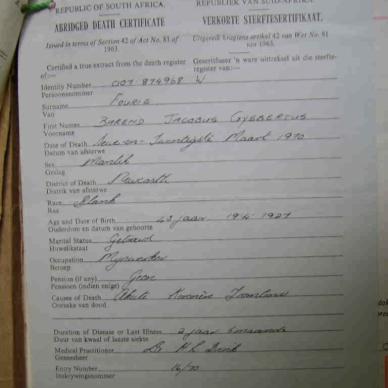 REPUBLIC OF SOUTH AFRICA. REPUBLIEK VAN SUID-AFRIKA.
ABRIDGED DEATH CERTIFICATE VERKORTE STERFTESERTIFIKAAT.
Issued in terms of Section 42 of Act No. 81 of 1963. Uitgereik kragtens artikel 42 van Wet No. 81 van 1963.
Certified a true extract from the death register of:— Gesertifiseer 'n ware uittreksel uit die sterfteregister van:—
Identity Number 007 874968 W
Persoonsnommer
Surname Fourie
Van
First Names BAREND JACOBUS GYSBERTUS
Voorname
Date of Death Maart 1970
Datum van afsterwe
Sex Manlik
Geslag
District of Death
Distrik van afsterwe
Race Blank
Ras
Age and Date of Birth 43 jaar 1927
Ouderdom en datum van geboorte
Marital Status Getroud
Huwelikstaat
Occupation Mynwerker
Beroep
Pension (if any) Geen
Pensioen (indien enige)
Causes of Death Akute
Oorsake van dood
Duration of Disease or Last Illness 2 jaar 6 maande
Duur van kwaal of laaste siekte
Medical Practitioner Dr
Geneesheer
Entry Number 16/70
Inskrywingsnommer